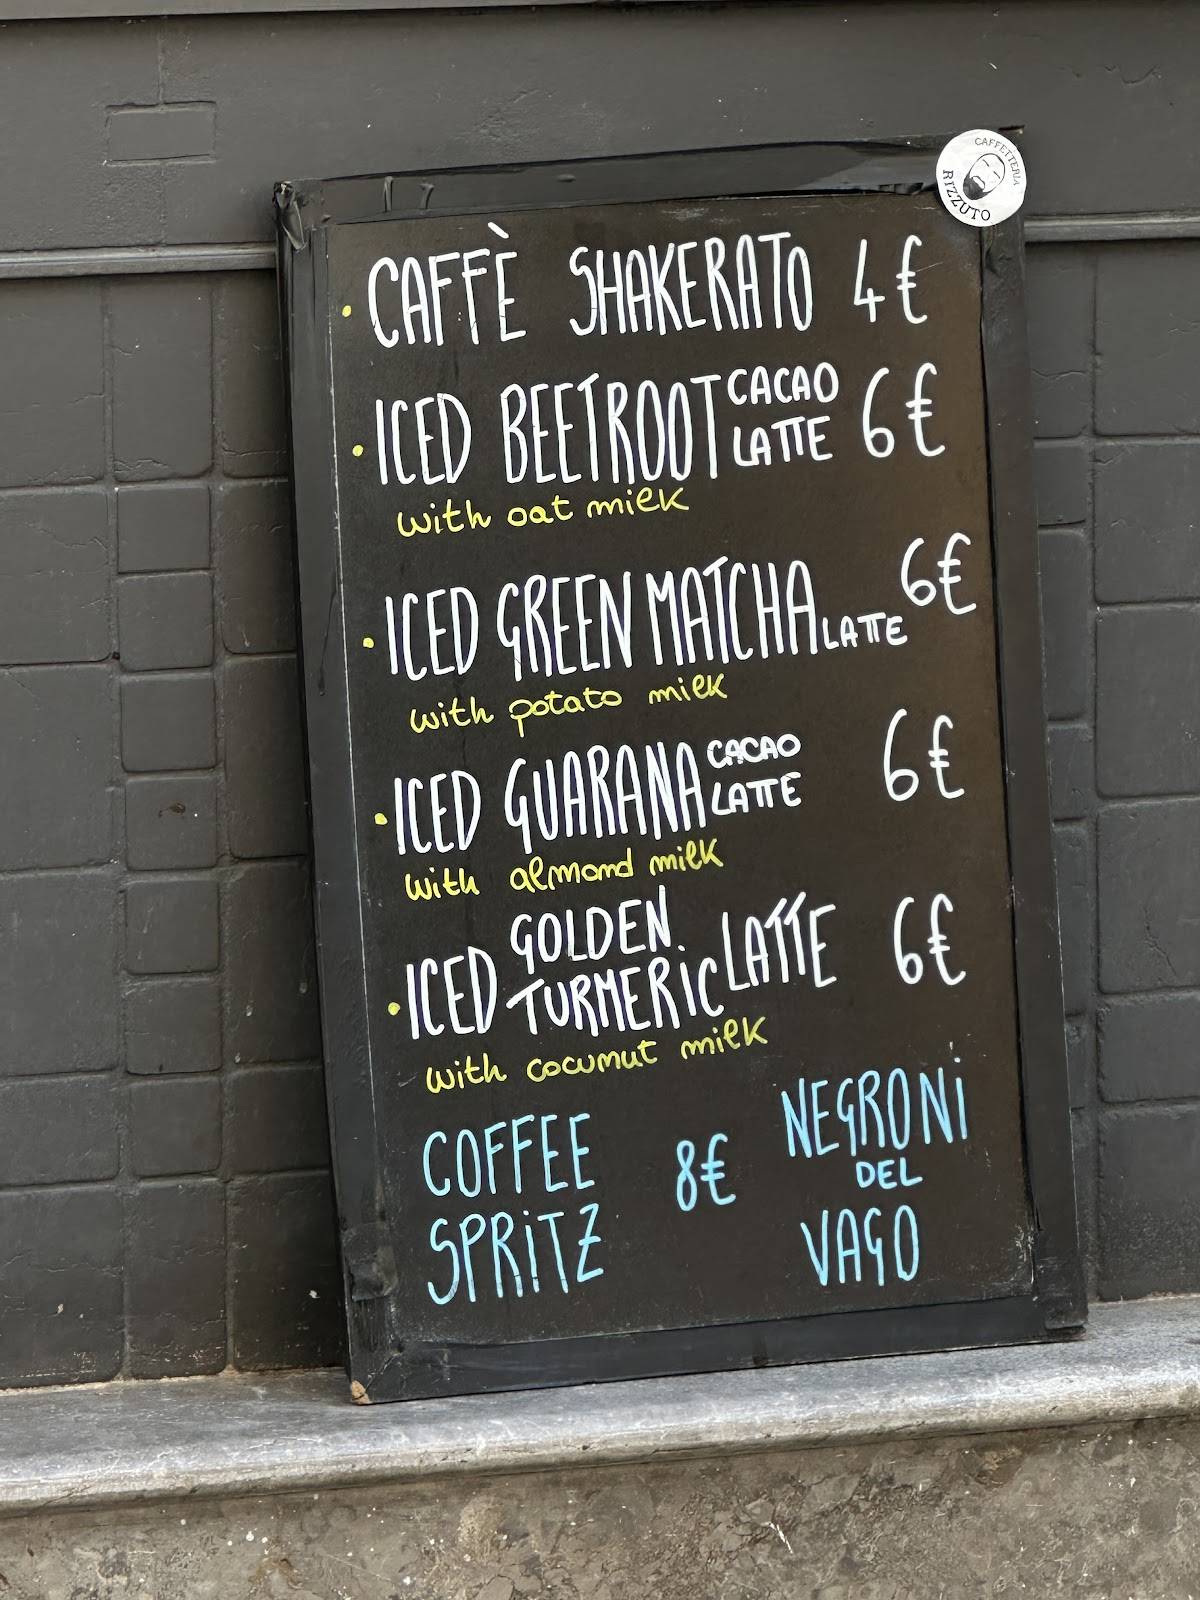 CAFFETTERIA
RIZZUTO
• CAFFÈ SHAKERATO 4€
• ICED BEETROOT CACAO LATTE 6€
with oat milk
• ICED GREEN MATCHA LATTE 6€
with potato milk
• ICED GUARANA CACAO LATTE 6€
with almond milk
• ICED GOLDEN TURMERIC LATTE 6€
with cocunut milk
COFFEE SPRITZ 8€ NEGRONI DEL VAGO